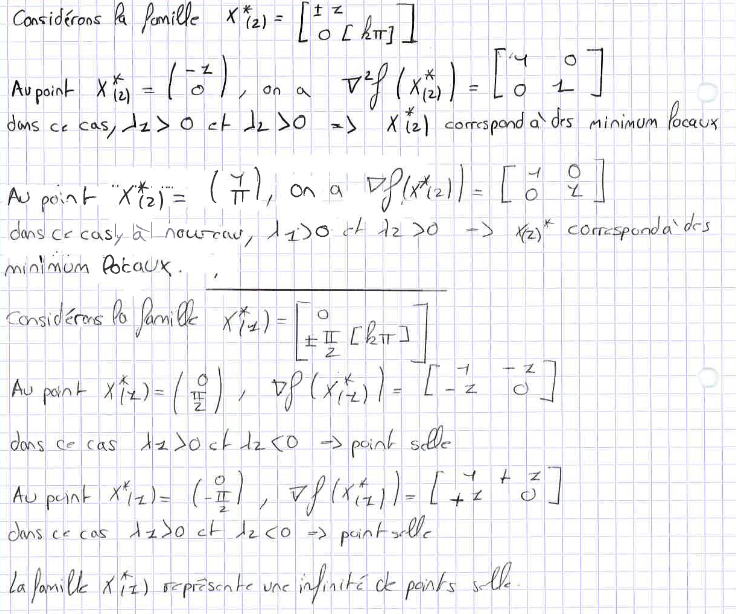 Considérons la famille X*(2) = [ ± 1 0 [kπ] ]
Au point X*(2) = ( -1 0 ), on a ∇²f(X*(2)) = [ 1 0 0 1 ]
dans ce cas, λ1 > 0 et λ2 > 0 => X*(2) correspond à des minimum locaux
Au point "X*(2)" = ( 1 π ), on a ∇f(X*(2)) = [ 1 0 0 1 ]
dans ce cas, à nouveau, λ1>0 et λ2>0 -> X(2)* correspond à des
minimum locaux.
Considérons la famille X*(1) = [ 0 ± π/2 [kπ] ]
Au point X*(1) = ( 0 π/2 ), ∇f(X*(1)) = [ 1 -1 -1 0 ]
dans ce cas λ1>0 et λ2<0 => point selle
Au point X*(1) = ( 0 -π/2 ), ∇f(X*(1)) = [ 1 +1 +1 0 ]
dans ce cas λ1>0 et λ2<0 => point selle
La famille X*(1) représente une infinité de points selle.